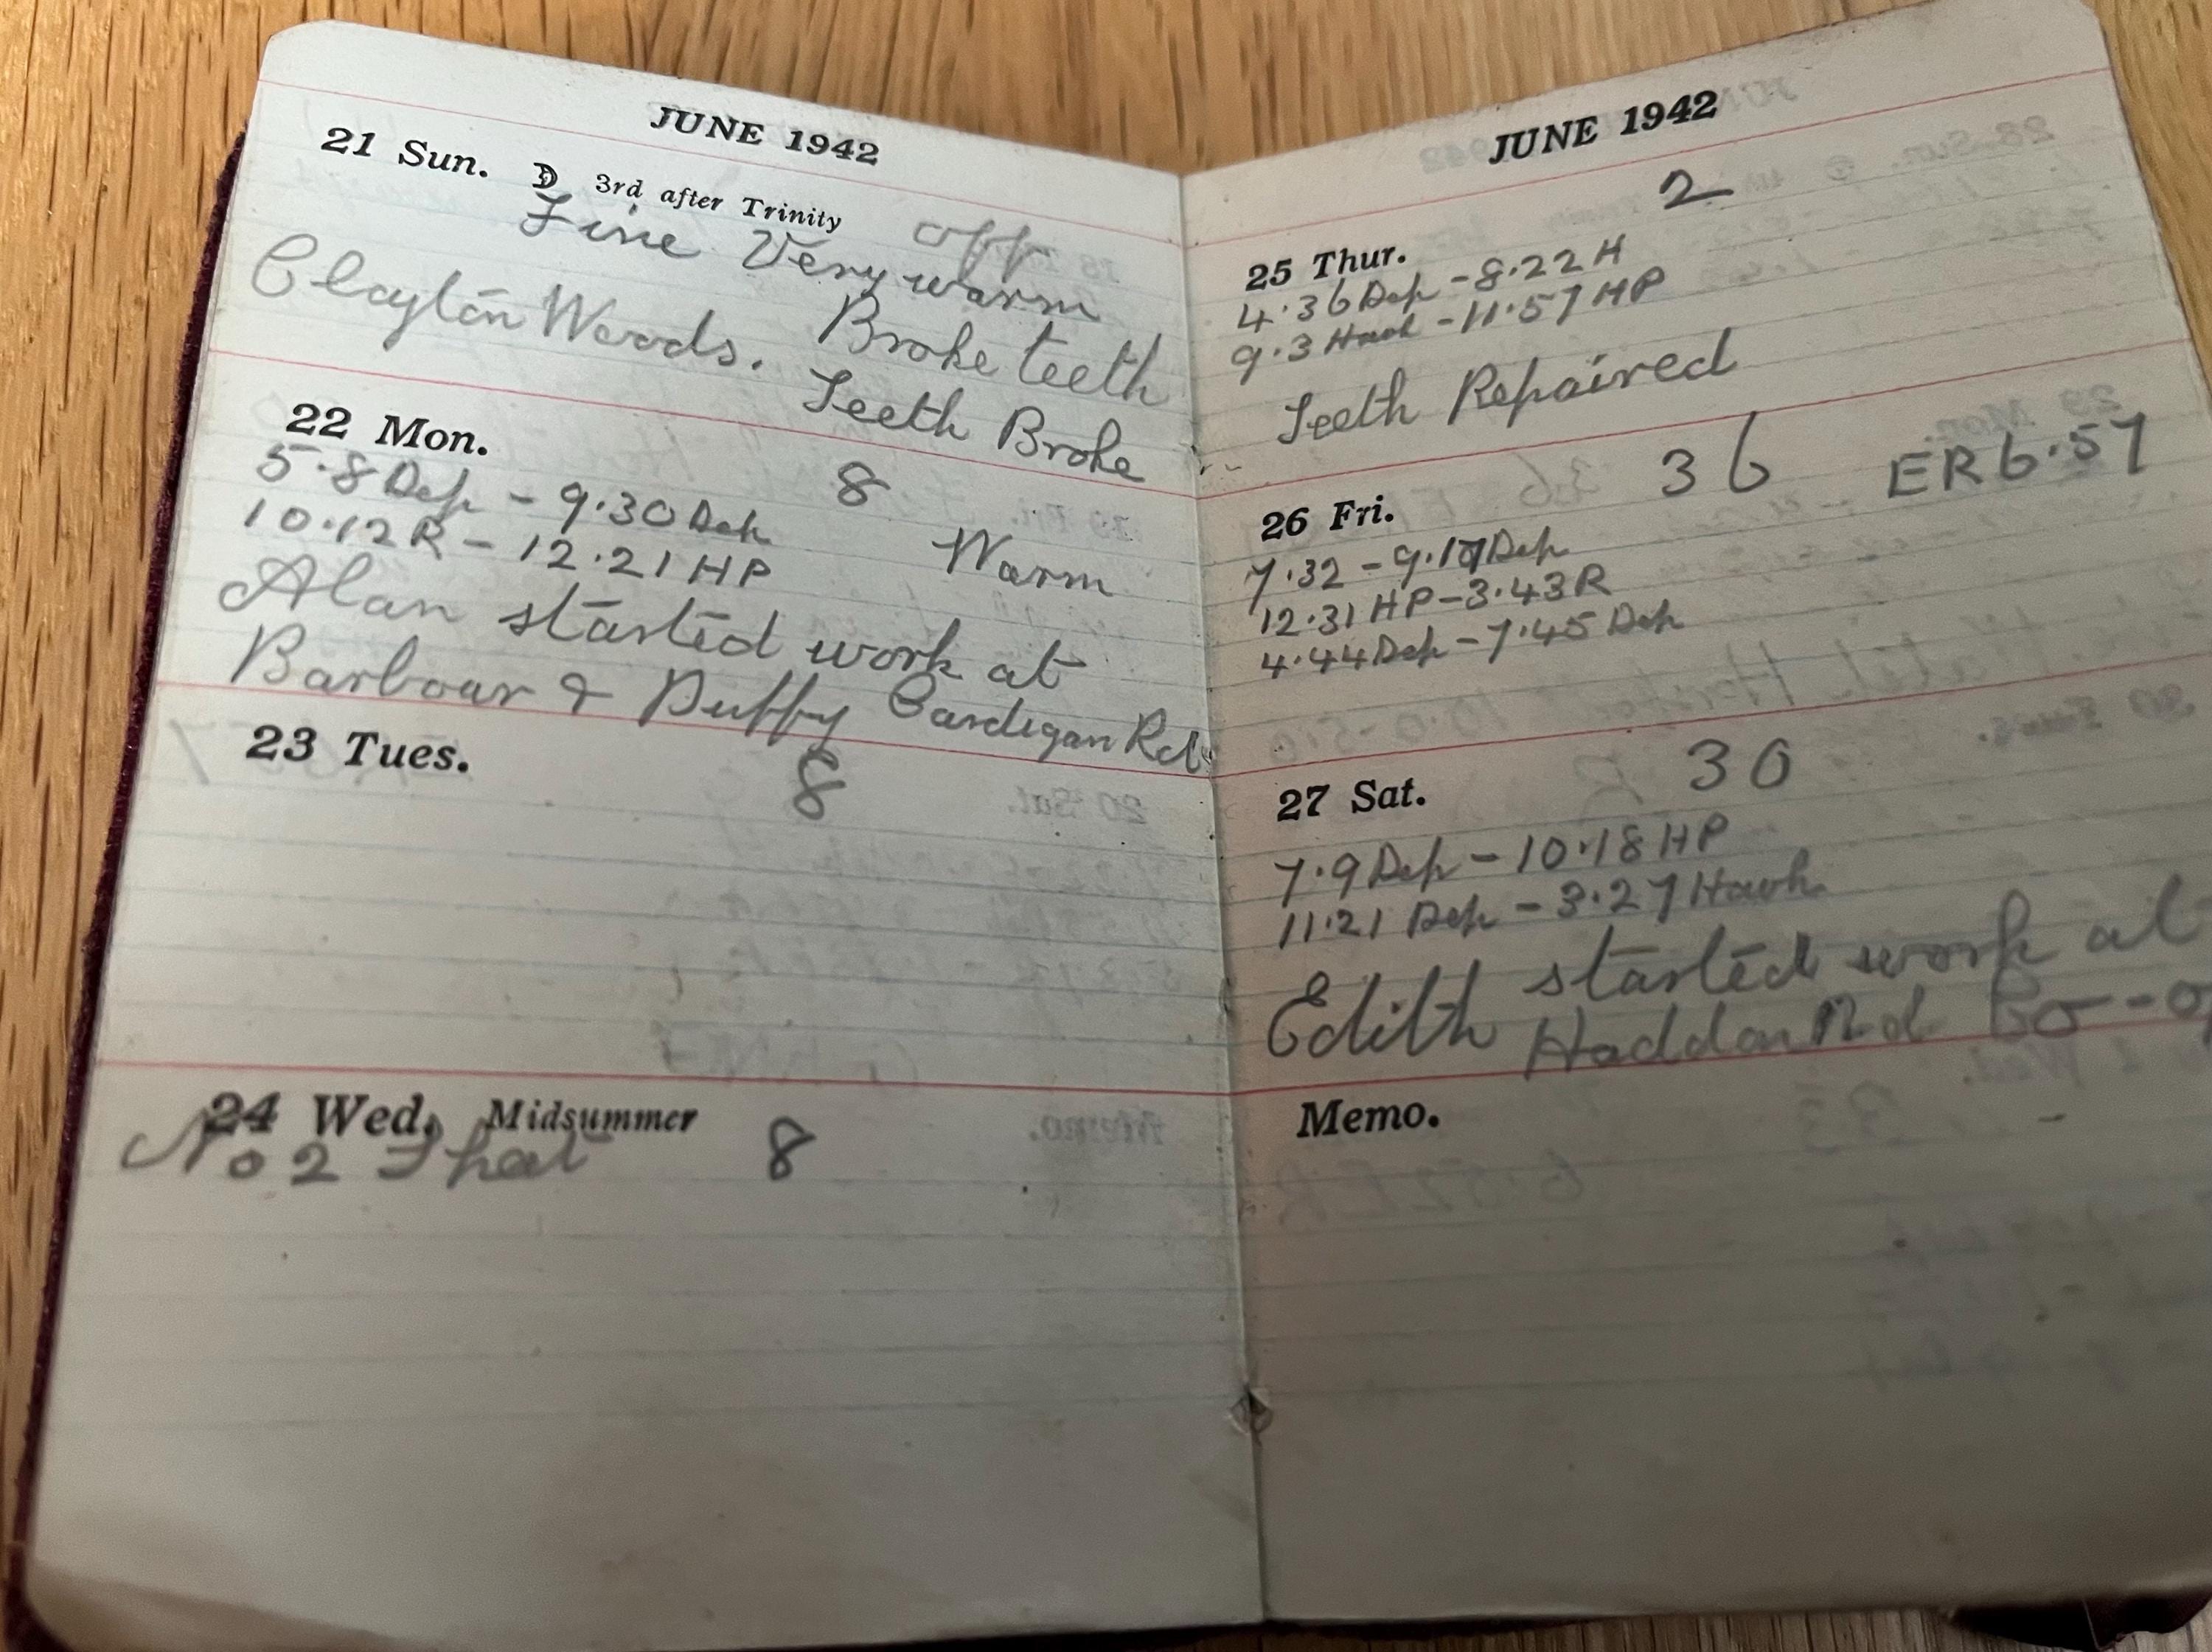 JUNE 1942
21 Sun. 3rd after Trinity off
Fine Very warm
Clayton Woods. Broke teeth
Teeth Broke
22 Mon. 8
5.8 Dep - 9.30 Dep
10.12 R - 12.21 HP Warm
Alan started work at
Barbour & Duffy Cardigan Rd.
23 Tues. 8
24 Wed. Midsummer 8
No 2
JUNE 1942
2
25 Thur.
4.36 Dep - 8.22 H
9.3 Hawk - 11.57 HP
Teeth Repaired
26 Fri. 36 ER 6.57
7.32 - 9.17 Dep
12.31 HP - 3.43 R
4.44 Dep - 7.45 Dep
27 Sat. 30
7.9 Dep - 10.18 HP
11.21 Dep - 3.27 Hawk
Edith started work at
Haddon Rd Co-op
Memo.